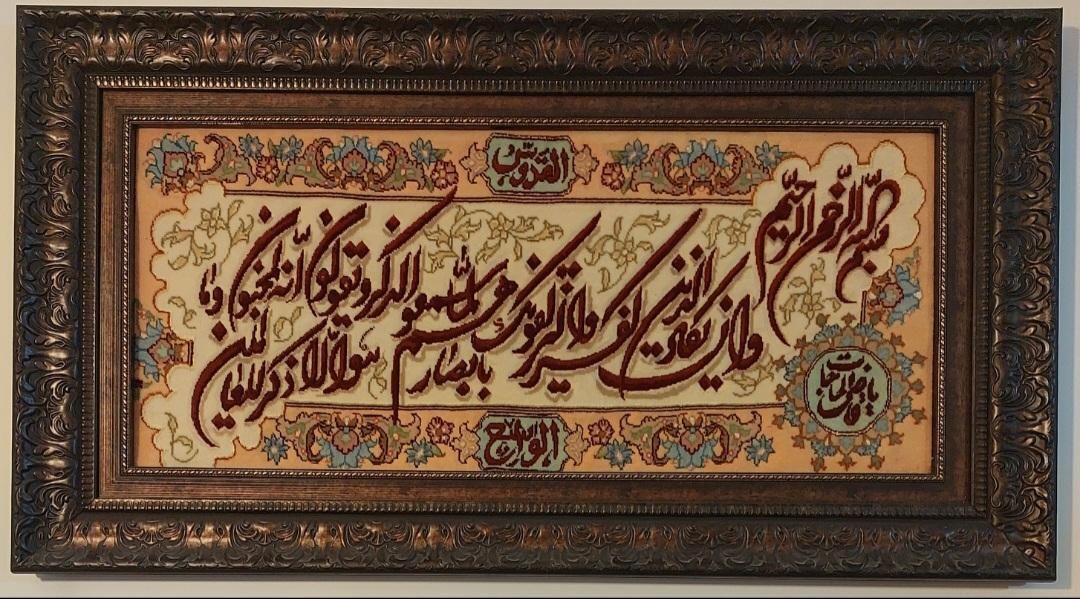 القدوس
بسم الله الرحمن الرحيم
وان يكاد الذين كفروا ليزلقونك بابصارهم لما سمعوا الذكر و يقولون انه لمجنون وما هو الا ذكر للعالمين
يا قاضي الحاجات
الواسع